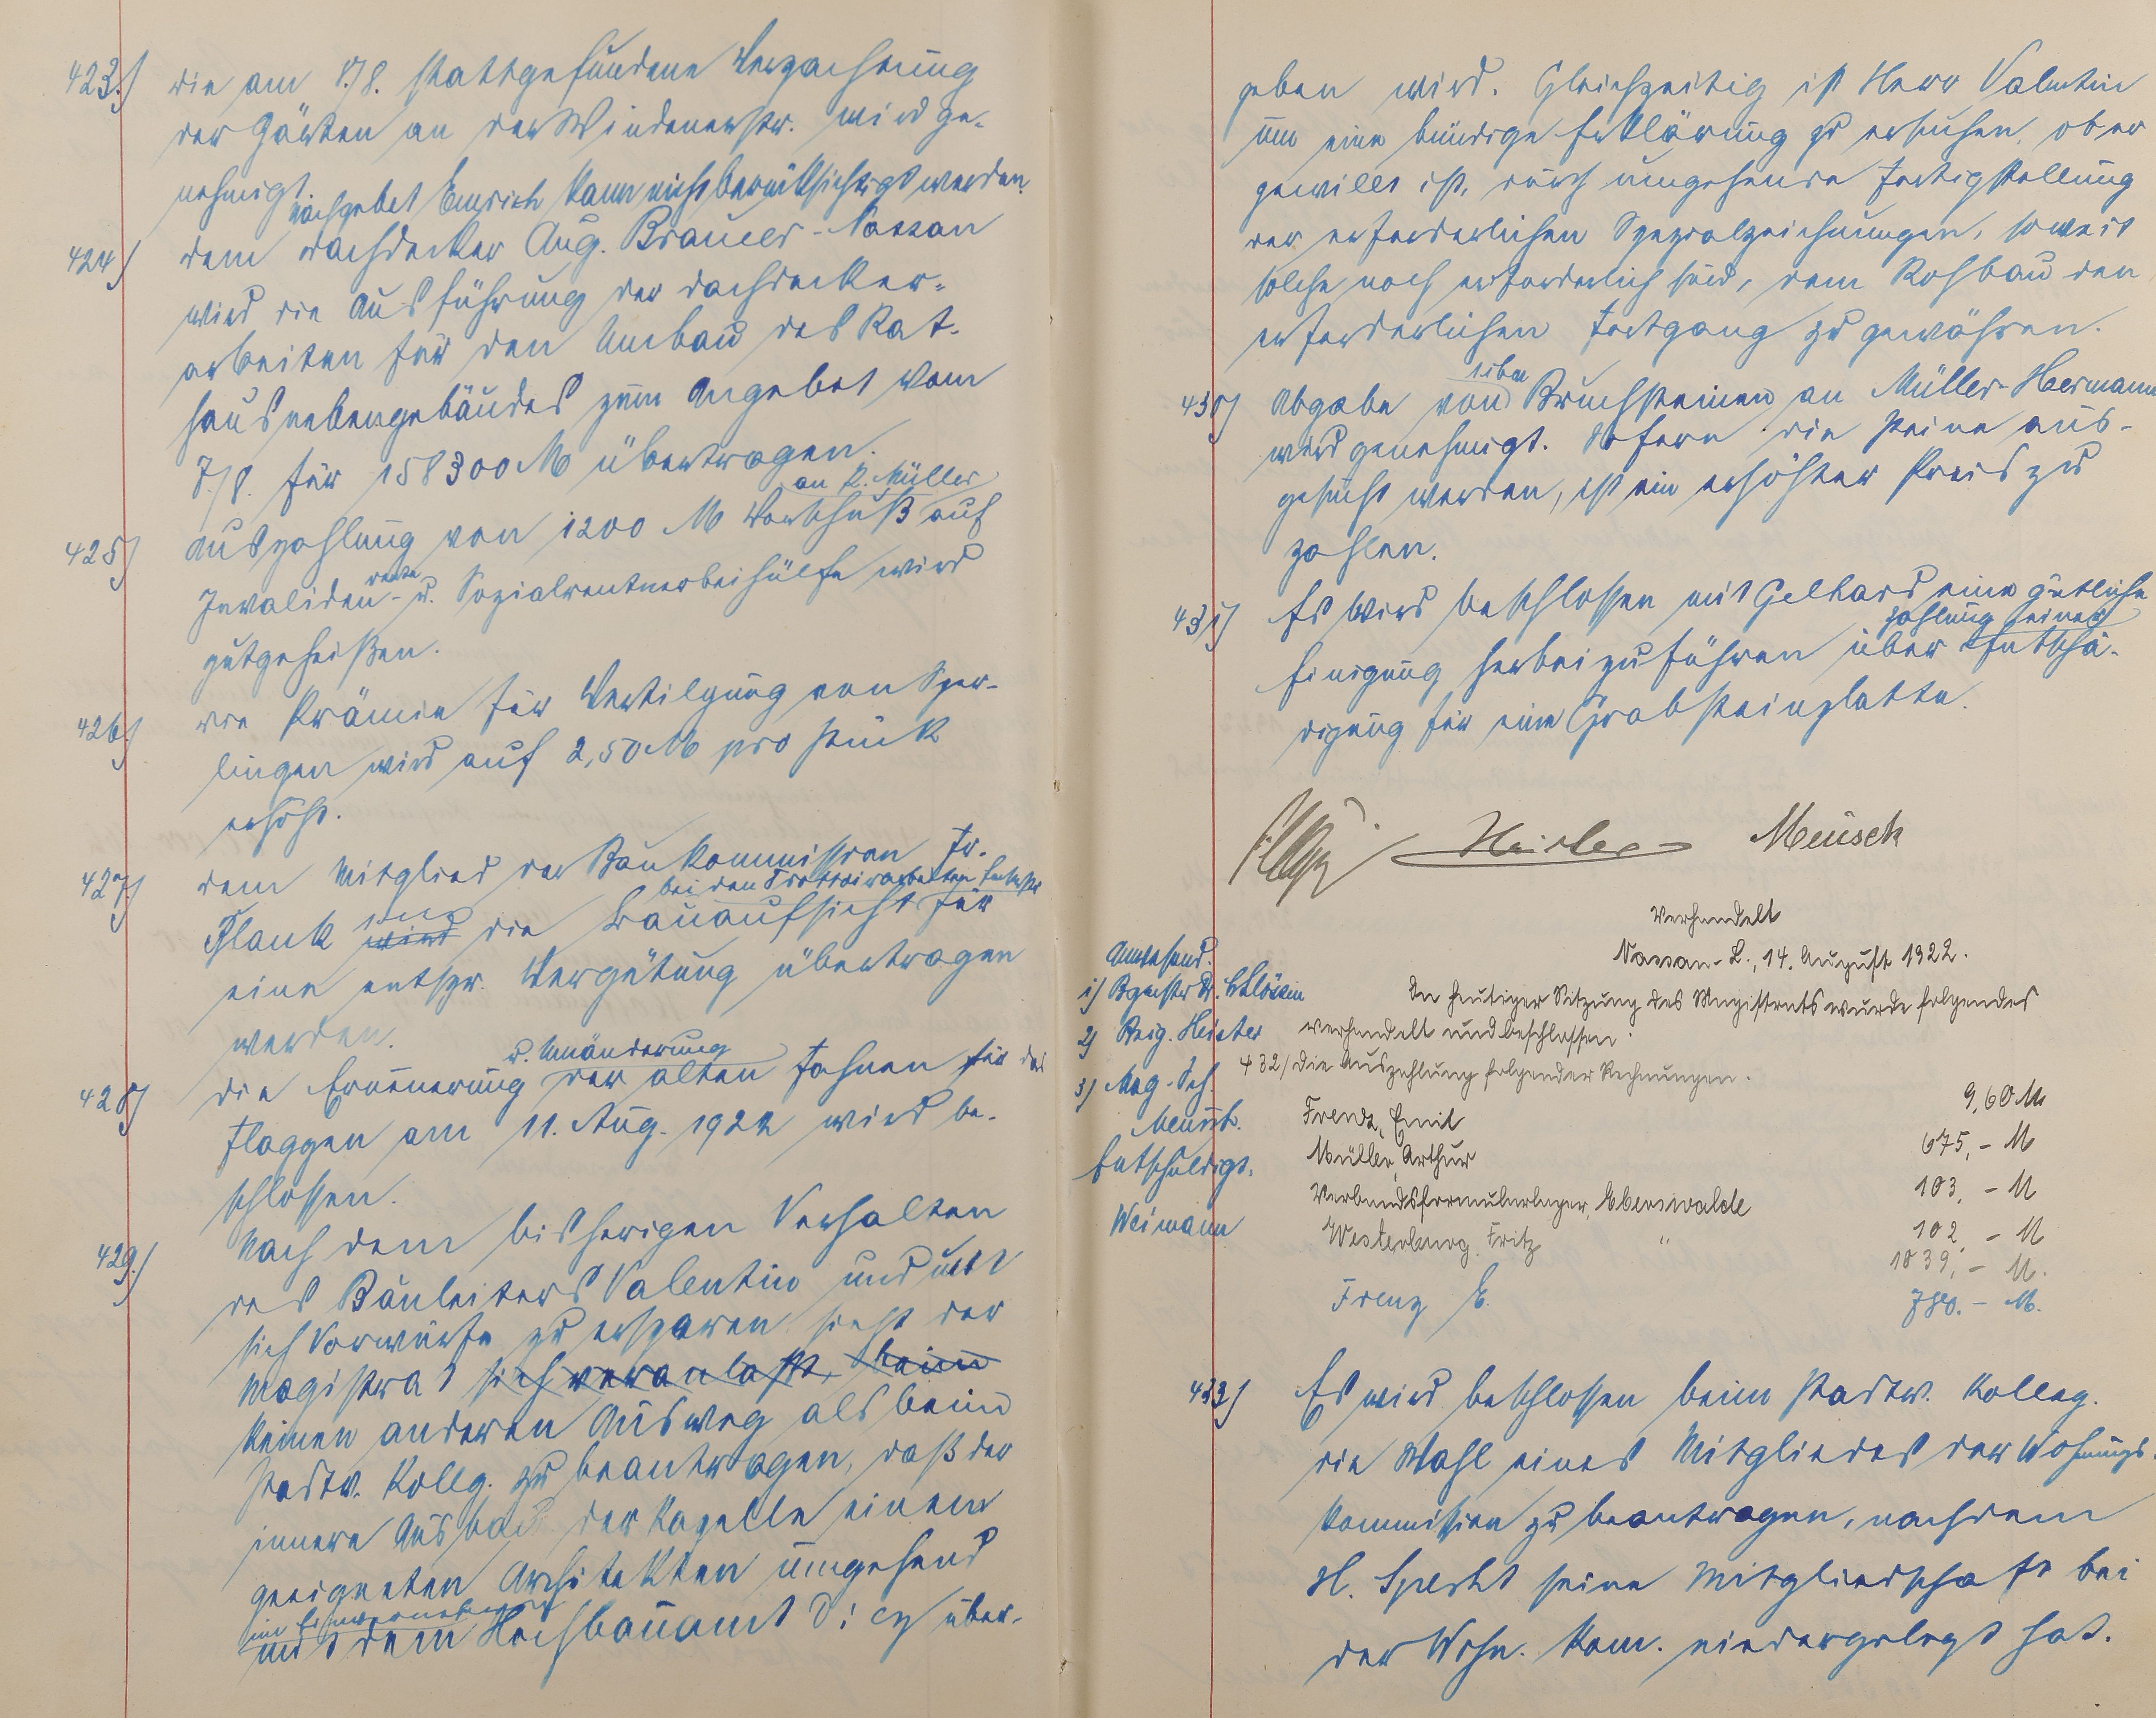 423.) die am 7./8. stattgefundene Verpachtung
der Gärten an der Windenerstr. wird ge-
nehmigt. Nachgebot Emrich kann nicht berücksichtigt werden.
424) dem Dachdecker Aug. Brauer-Nassau
wird die Ausführung der Dachdecker-
arbeiten für den Umbau des Rat-
hausnebengebäudes zum Angebot vom
7./8. für 158300 M übertragen.
an K. Müller
425) Auszahlung von 1200 M Vorschuß auf
Invaliden- rente u. Sozialrentnerbeihülfe wird
gutgeheißen.
426) die Prämie für Vertilgung von Sper-
lingen wird auf 2,50 M pro Stück
erhöht.
427) dem Mitglied der Baukommission Fr.
bei den Trottoirarbeiten
Plank wird die Bauaufsicht für
eine entspr. Vergütung übertragen
werden.
u. Umänderung
428) die Erneuerung der alten Fahnen für das
Flaggen am 11. Aug. 1922 wird be-
schlossen.
429.) Nach dem bisherigen Verhalten
des Bauleiters Valentin und um
sich Vorwürfe zu ersparen sieht der
Magistrat sich veranlaßt, beim
keinen anderen Ausweg als beim
Stadtv. Kollg. zu beantragen, daß der
innere Ausbau der Kapelle einem
geeigneten Architekten umgehend
im Einvernehmen
mit dem Hochbauamt Diez über-
geben wird. Gleichzeitig ist Herr Valentin
um eine bündige Erklärung zu ersuchen, ob er
gewillt ist, durch umgehende Fertigstellung
der erforderlichen Spezialzeichnungen, soweit
solche noch erforderlich sind, dem Rohbau den
erforderlichen Fortgang zu gewähren.
430) Abgabe von Bruchsteinen an Müller-Hermann
wird genehmigt. Sofern die Steine aus-
gesucht werden, ist ein erhöhter Preis zu
zahlen.
431) Es wird beschlossen mit Gelhard eine gütliche
Zahlung einer
Einigung herbeizuführen über Entschä-
digung für eine Grabsteinplatte.
Heister Meusch
Verhandelt
Nassau-L., 14. August 1922.
Anwesend.
1) Bgmstr Dr.
2) Beig. Heister
3) Mag. Sch.
Meusch.
Entschuldigt.
Weimann
In heutiger Sitzung des Magistrats wurde folgendes
verhandelt und beschlossen:
432) Die Auszahlung folgender Rechnungen.
Frenz, Emil 9,60 M
Müller, Arthur 675,- M
Verbandsformularlager, Eberswalde 103,- M
Westerburg, Fritz " 102,- M
1039,- M.
Frenz E. 780.- M.
433) Es wird beschlossen beim Stadtv. Kolleg.
die Wahl eines Mitgliedes der Wohnungs-
kommission zu beantragen, nachdem
H. Specht seine Mitgliedschaft bei
der Wohn. Kom. niedergelegt hat.